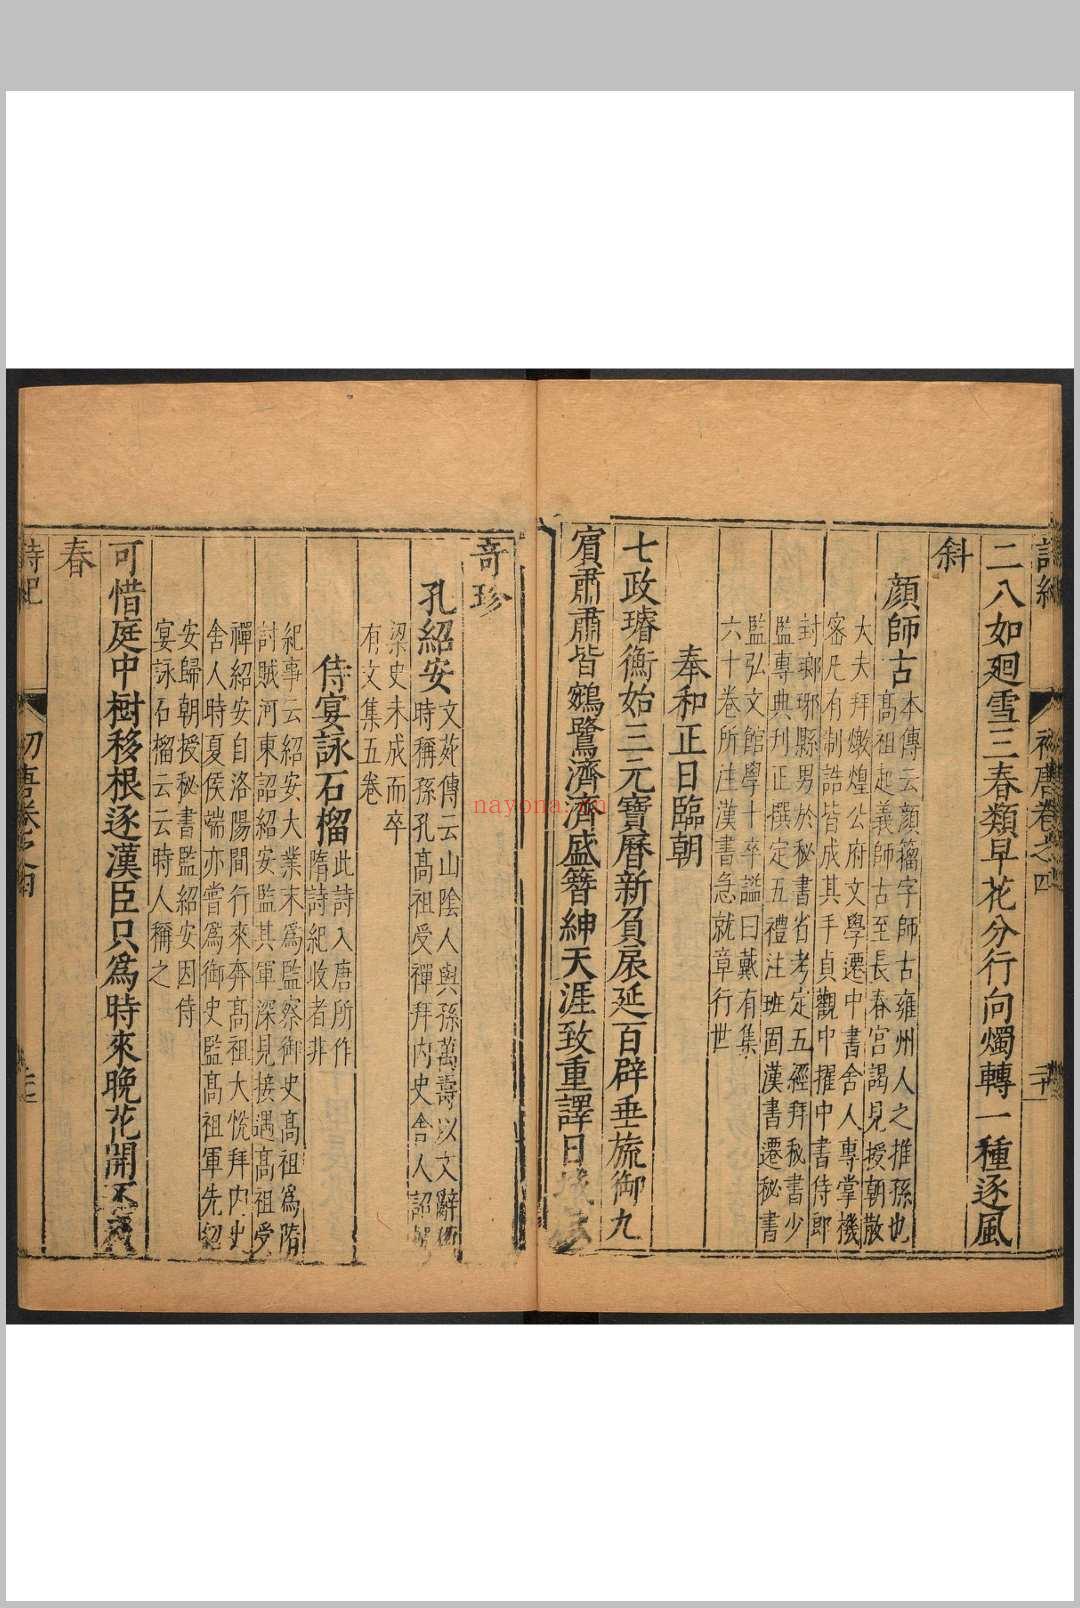 詩紀 初唐卷之四 二十
二八如廻雪三春類早花分行向燭轉一種逐風
斜
顔師古
本傳云顔籀字師古雍州人之推孫也
髙祖起義師古至長春宫謁見授朝散
大夫拜燉煌公府文學遷中書舍人專掌機
宻凡有制誥皆成其手貞觀中擢中書侍郎
封瑯琊縣男於秘書省考定五經拜秘書少
監專典刋正撰定五禮注班固漢書遷秘書
監弘文館學士卒謚曰戴有集
六十卷所注漢書急就章行世
奉和正日臨朝
七政璿衡始三元寶曆新負扆延百辟垂旒御九
賔肅肅皆鵷鷺濟濟盛簪紳天涯致重譯日域
奇珍
孔紹安
文苑傳云山陰人與孫萬壽以文辭
時稱孫孔髙祖受禪拜内史舍人詔
梁史未成而卒
有文集五卷
侍宴詠石榴
此詩入唐所作
隋詩紀收者非
紀事云紹安大業末爲監察御史髙祖爲隋
討賊河東詔紹安監其軍深見接遇髙祖受
禪紹安自洛陽間行來奔髙祖大悦拜内史
舍人時夏侯端亦嘗爲御史監髙祖軍先紹
安歸朝授秘書監紹安因侍
宴詠石榴云云時人稱之
可惜庭中樹移根逐漢臣只爲時來晚花開不
春
詩紀 初唐卷之四
nayona.cn